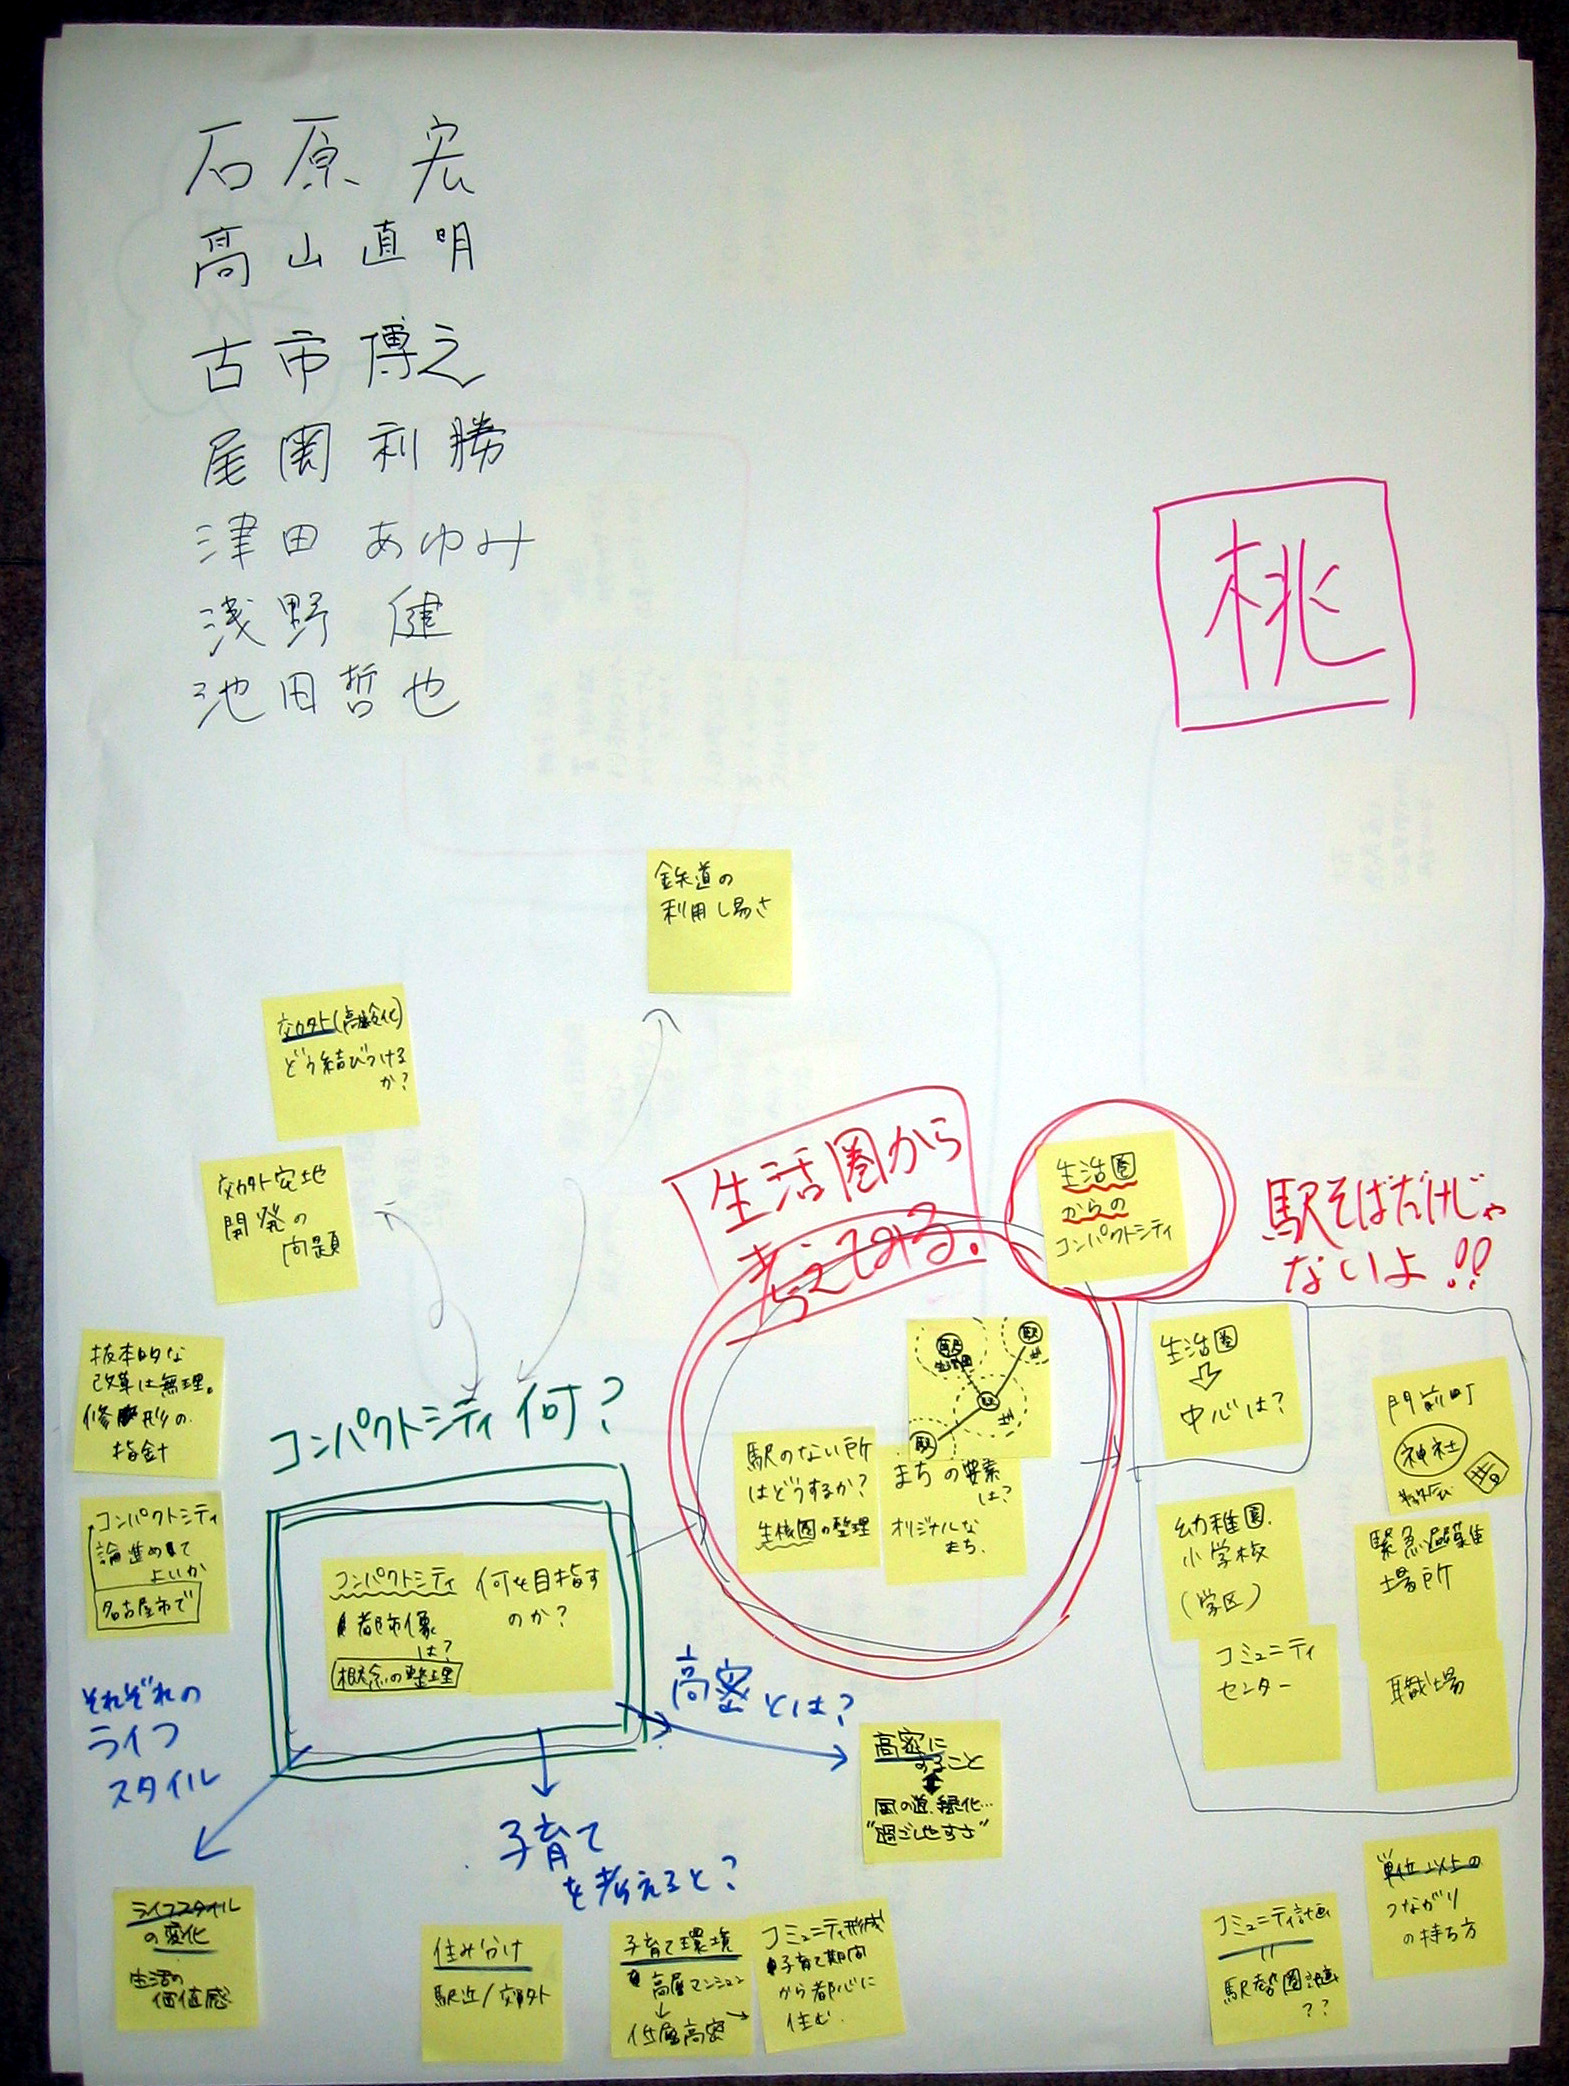 石原 宏
高山直明
古市博之
尾関利勝
津田 あゆみ
浅野 健
池田哲也
桃
鉄道の
利用し易さ
郊外(高齢化)
どう結びつける
か?
郊外宅地
開発の
問題
抜本的な
改革は無理。
修形の
指針
コンパクトシティ
論進めて
よいか
名古屋市で
コンパクトシティ 何?
コンパクトシティ
都市像
は?
概念の整理
何を目指す
のか?
生活圏から
考えてみる.
生活圏
からの
コンパクトシティ
駅そばだけじゃ
ないよ!!
駅
生活圏
駅
駅
駅
駅のない所
はどうするか?
生活圏の整理
まちの要素
は?
オリジナルな
まち.
生活圏
中心は?
門前町
神社
教会
昔
幼稚園.
小学校
(学区)
緊急避難
場所
コミュニティ
センター
職場
それぞれの
ライフ
スタイル
高密とは?
高密に
すること
風の道.緑化…
"過ごしやすさ"
子育て
を考えると?
ライフスタイル
の変化
生活の
価値感
住み分け
駅近/郊外
子育て環境
高層マンション
低層高密
コミュニティ形成
子育て期間
から都心に
住む.
コミュニティ計画
駅勢圏計画
??
単位以上の
つながり
の持ち方